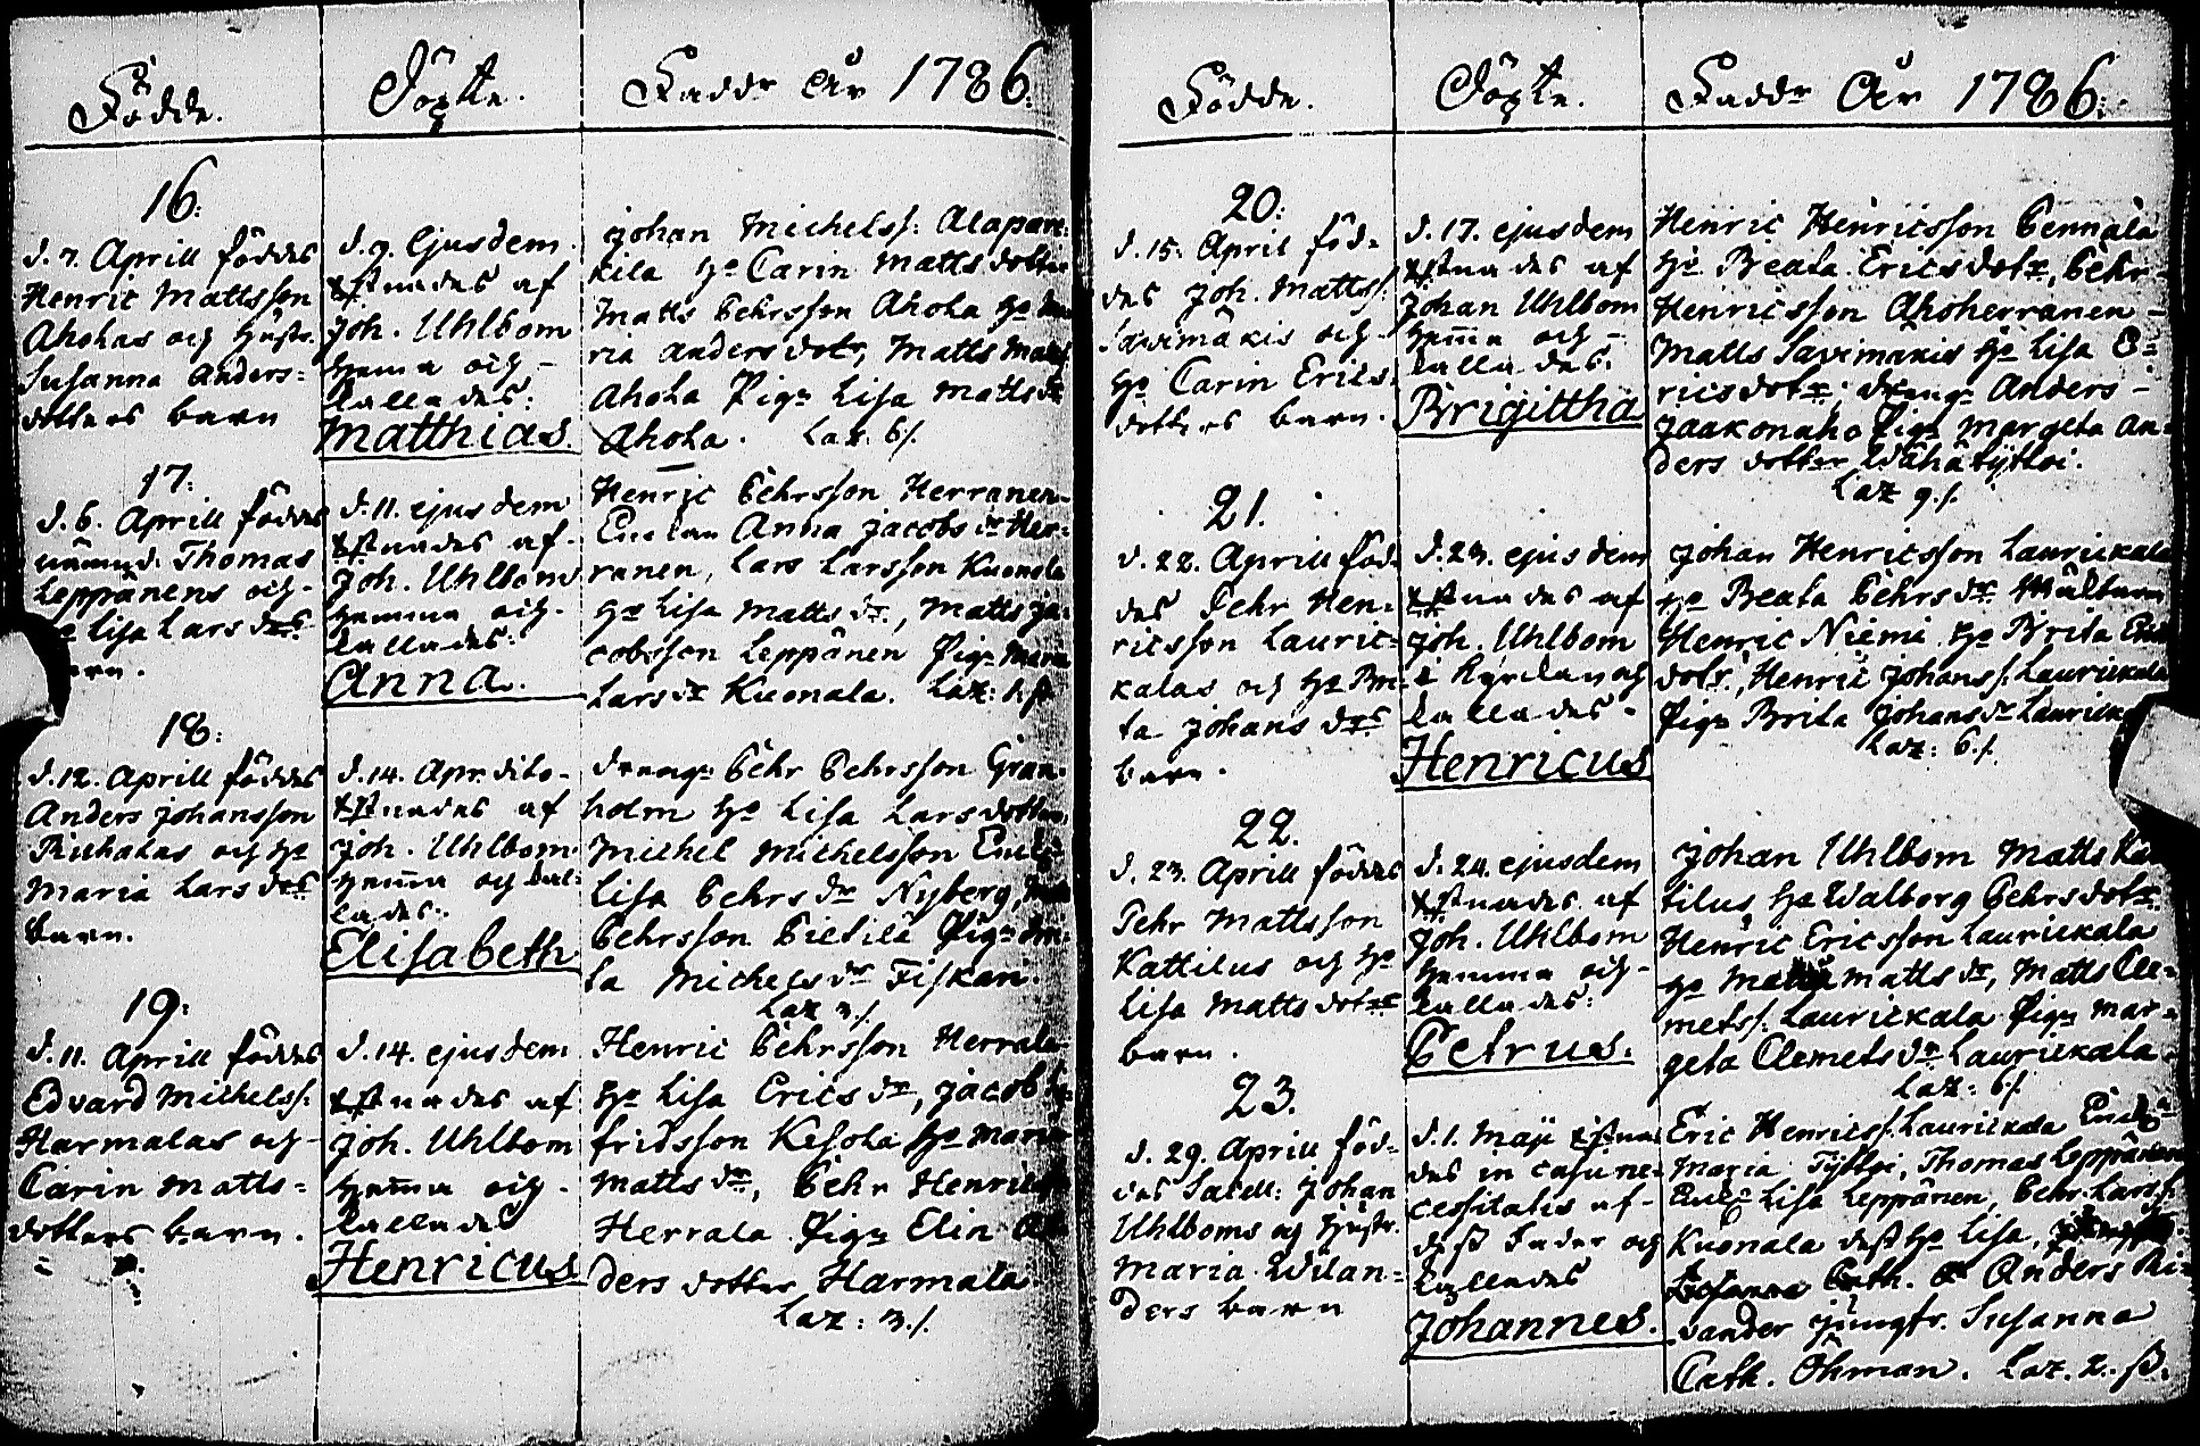 Födde.
Döpte.
Faddr År 1786.
16:
d. 7. Aprill föddes
Henric Mattsson
Aholas och Hustr.
Susanna Anders=
dotters barn
d. 9. Ejusdem
Xstnades af
Joh. Uhlbom
hema och -
kallades:
Matthias.
Johan Michelss: Alapare:
kila Ho Carin Matts dotter
Matts Pehrsson Ahola Ho Ma
ria Andersdotr, Matts Matts
Ahola Pig. Lisa Matts dr
Ahola. Laz: 6/.
17:
d. 6. Aprill föddes
nämnd. Thomas
Leppänens och -
Lisa Lars drs
d. 11. ejusdem
Xstnades af -
Joh. Uhlbom
hemma och -
kallades:
Anna.
Henric Pehrsson Herranen -
Enkan Anna Jacobs dr Her=
ranen, Lars Larsson Kuonala
Ho Lisa Matts dr., Matts Ja:
cobsson Leppänen Pig. Maria
Lars dr Kuonala. Laz:
18:
d. 12. Aprill föddes
Anders Johansson
och Ho
Maria Lars drs
barn.
d. 14. Apr. dito -
Xstnades af
Joh. Uhlbom
hema och kal=
lades:
Elisabeth
dreng. Pehr Pehrsson Gran=
holm Ho Lisa Larsdotter,
Michel Michelsson
Lisa Pehrs dr Nyberg,
Pehrsson Pietilä Pig.
ta Michels dr Fiskari.
Laz 3/.
19:
d. 11. Aprill föddes
Edvard Michelss:
Harmalas och -
Carin Matts=
dotters barn.
d. 14. ejusdem
Xstnades af
Joh. Uhlbom
hema och -
kallades
Henricus
Henric Pehrsson Herrala
Ho Lisa Erics dr, Jacob
fridsson Kesola Ho Maria
Matts dr, Pehr Henricss
Herrala Pig. Elin An
ders dotter Harmala
Laz: 3./.
Födde.
Döpte.
Faddr År 1786.
20:
d. 15. April föd=
des Joh. Mattss:
Savimäkis och -
Ho Carin Erics=
dotters barn.
d. 17. ejusdem
Xstnades af
Johan Uhlbom
hema och -
kallades:
Brigittha
Henric Henricsson Pennala
Ho Beata Ericsdotr, Pehr -
Henricsson Ahoherranen -
Matts Savimäkis Ho Lisa E=
ricsdotr; dreng. Anders -
Jaakonaho Pig. Margeta An=
ders dotter Wähätyttöi.
Laz 9./.
21.
d. 22. Aprill föd=
des Pehr Hen=
ricsson Lauric=
kalas och Ho Bri=
ta Johans drs
barn.
d. 23. ejusdem
Xstnades af
Joh. Uhlbom
i Kyrckan och
kallades -
Henricus
Johan Henricsson Laurickala
Ho Beata Pehrs dr
Henric Niemi Ho Brita
dotr, Henric Johanss: Laurickala
Pig. Brita Johans dr Lauricka
Laz: 6./.
22.
d. 23. Aprill föddes
Pehr Mattsson
Kattilus och Ho
Lisa Matts dotrs
barn.
d. 24. ejusdem
Xstnades af
Joh. Uhlbom
hemma och -
kallades:
Petrus.
Johan Uhlbom Matts Kat
tilus, Ho Walborg Pehrsdotr.
Henric Ericsson Laurickala
Ho Matts dr, Matts Cle=
metss: Laurickala Pig. Mar=
geta Clemets dr Laurickala
Laz: 6/.
23.
d. 29. Aprill föd=
des Sacell: Johan
Uhlboms och Hustr.
Maria Wilan=
ders barn
d. 1. Maji Xstna
des in casu ne=
cessitatis af -
dess Fader och
kallades
Johannes.
Eric Henricss: Laurickala Enck.
Maria Tyttöi, Thomas Leppänen
Enck. Lisa Leppänen, Pehr Larss:
Kuonala dess Ho Lisa,
Cath. Anders Ri=
vander Jungfr. Susanna
Cath. Öhman. Laz. 2. ß.